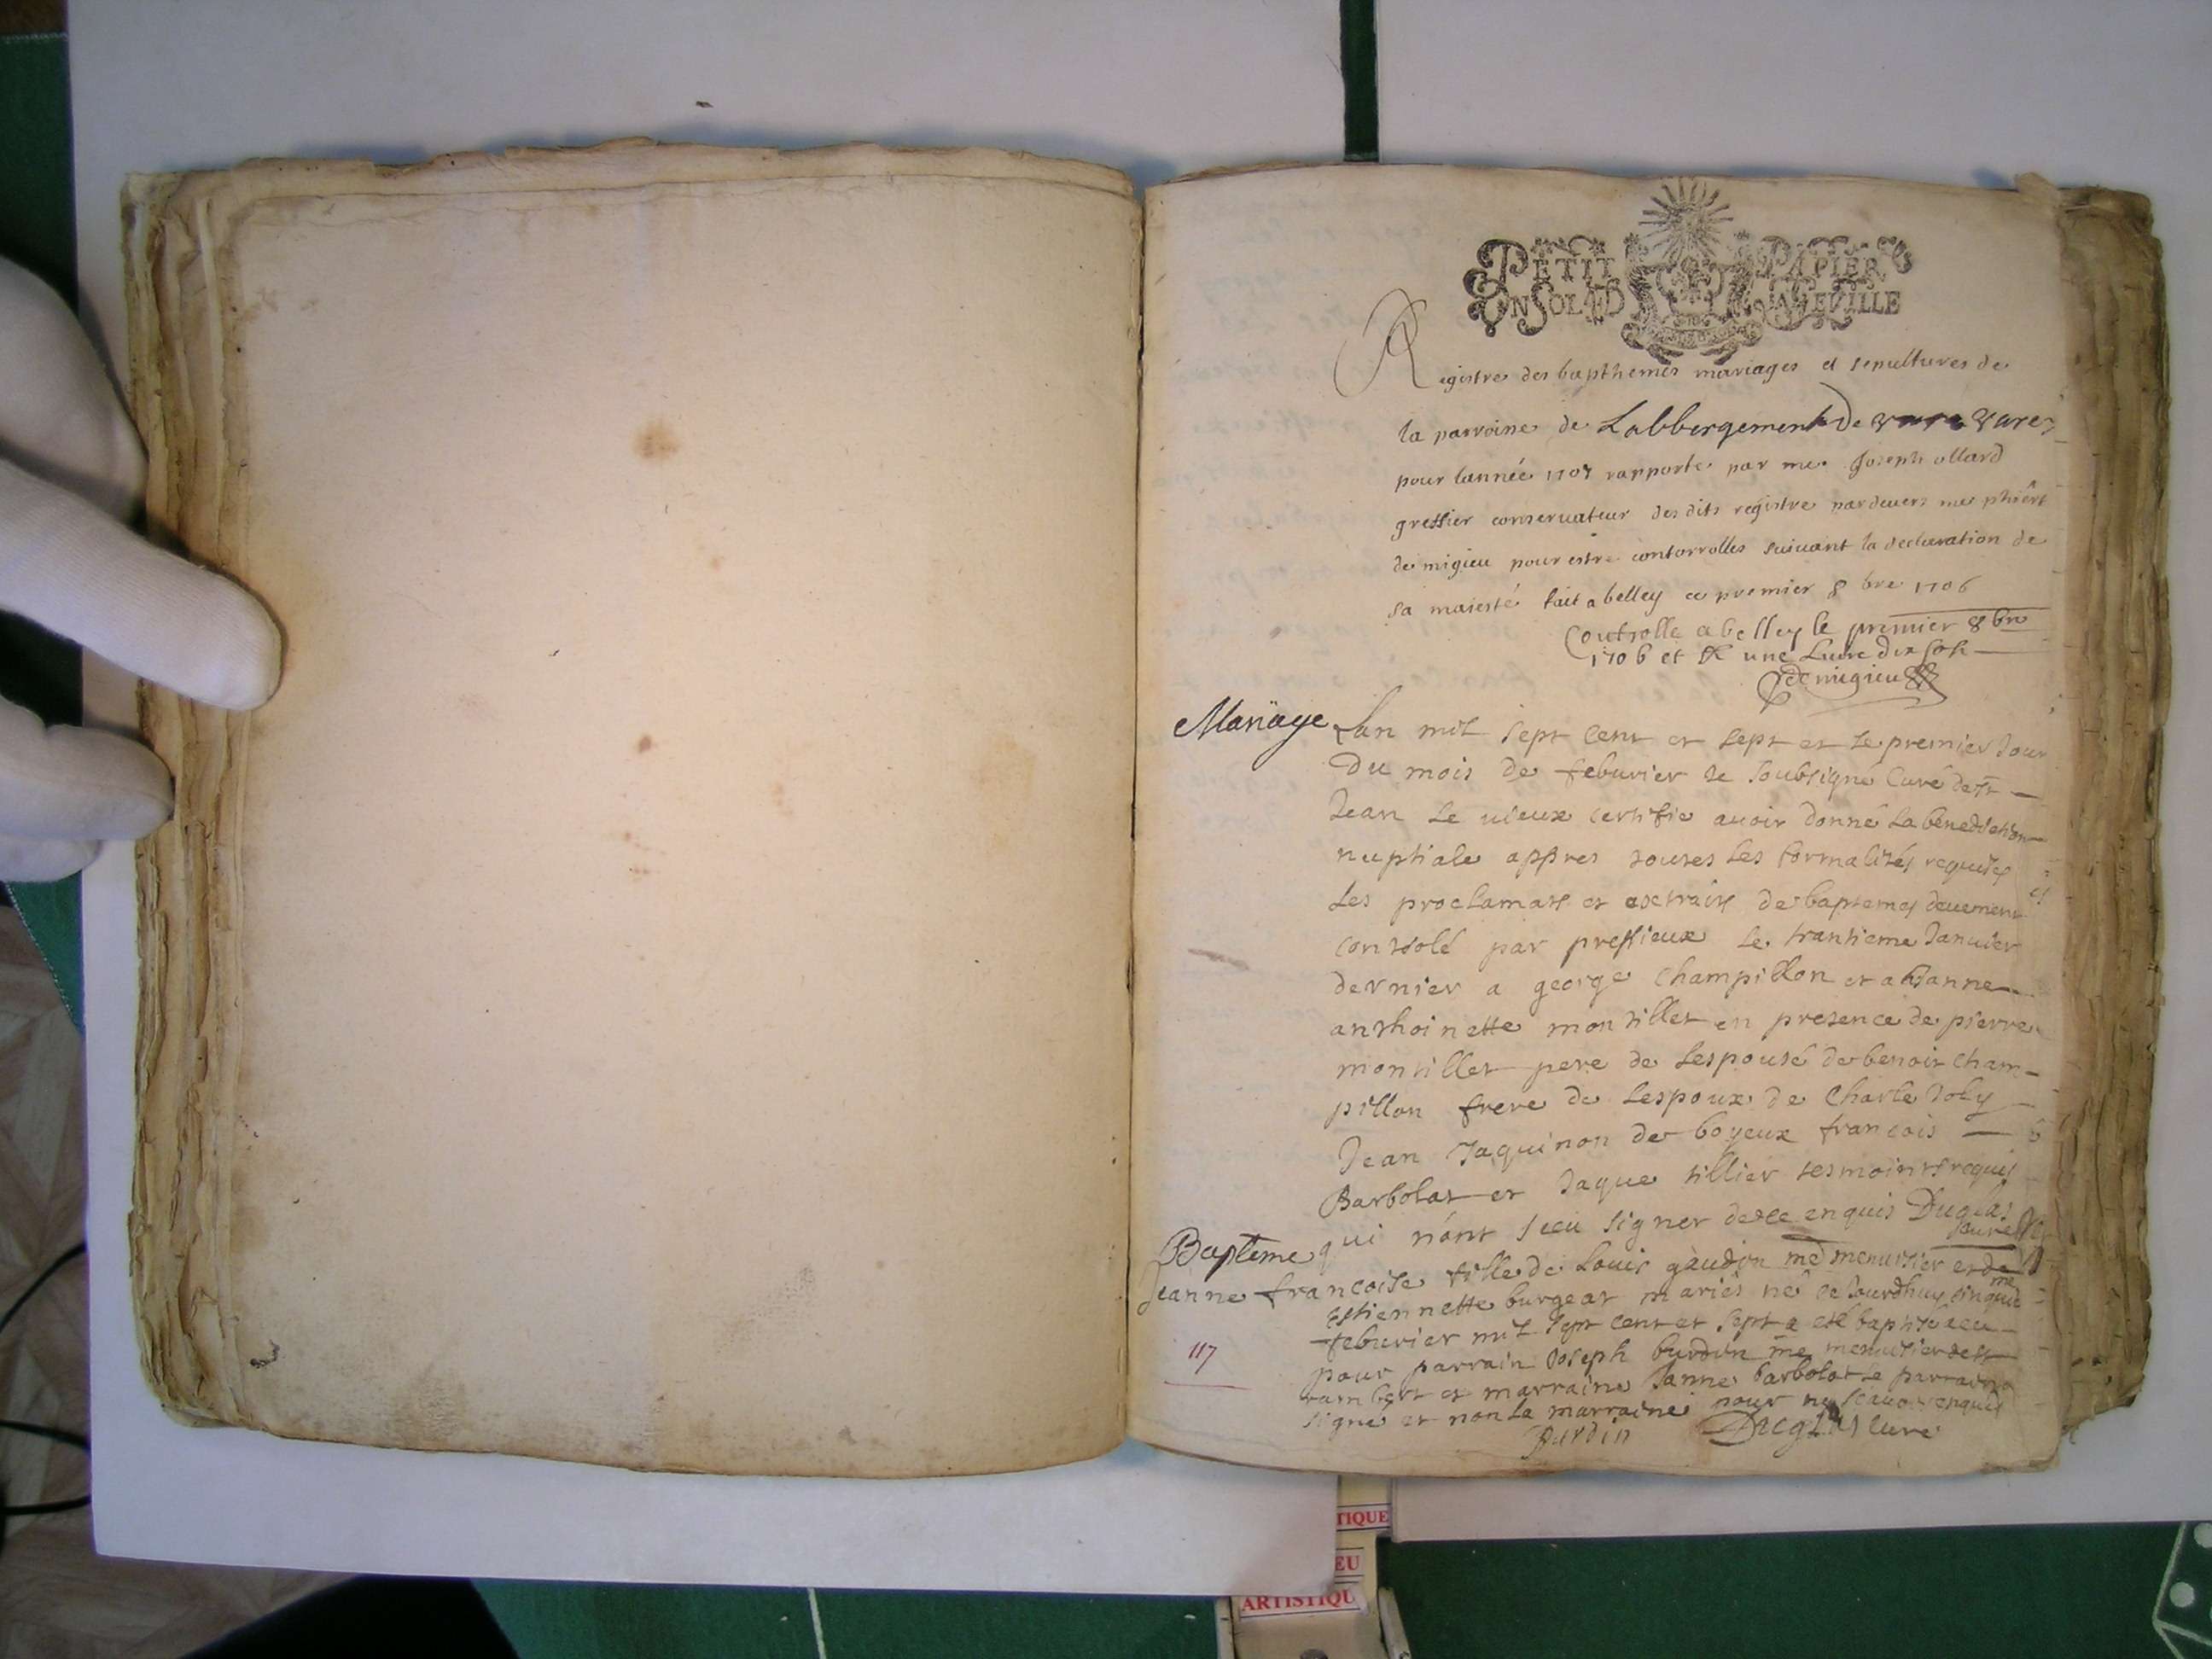 PETIT PAPIER
UN SOL LE D LA FEUILLE
Registre des bapthemes mariages et sepultures de
la parroisse de Labbergement de Varey
pour lannée 1707 rapporte par me Joseph ollard
greffier conservateur des dits registre pardevers me
de migieu pour estre contorrolles suivant la declaration de
sa maiesté fait a belley ce premier 8 bre 1706
Controlle a belley le premier 8 bre
1706 et R une Livre dix sols
de migieu
Mariage
Lan mil sept cent et sept et le premier Jour
Du mois de feburier Je soubsigné Curé de st
Jean le vieux certifie avoir donné la benediction
nuptiale appres toutes les formalités requises
Les proclamats et extraits de baptemes deuement
controlé par pressieux le trantieme Janvier
dernier a george Champillon et a Janne
anthoinette montillet en presence de pierre
montillet pere de Lespouse de benoit Cham-
pillon frere de Lespoux de Charle Joly
Jean Jaquinon de boyeux francois
Barbolat et Jaque tillier tesmoins requis
qui nont sceu signer de ce enquis Duglas
curé
Bapteme
Jeanne francoise fille de Louis gaudin me menuisier et de
Estiennette burgeat mariés né ce Jourdhuy sinquie me
feburier mil sept cent et sept a esté baptisée a eu
pour parrain Joseph burdin me menuisier de st
rambert et marraine Janne barbolat le parrain a
signé et non la marraine pour ny scavoir enquis
117
Burdin Duglas curé
TIQUE
EU
ARTISTIQU